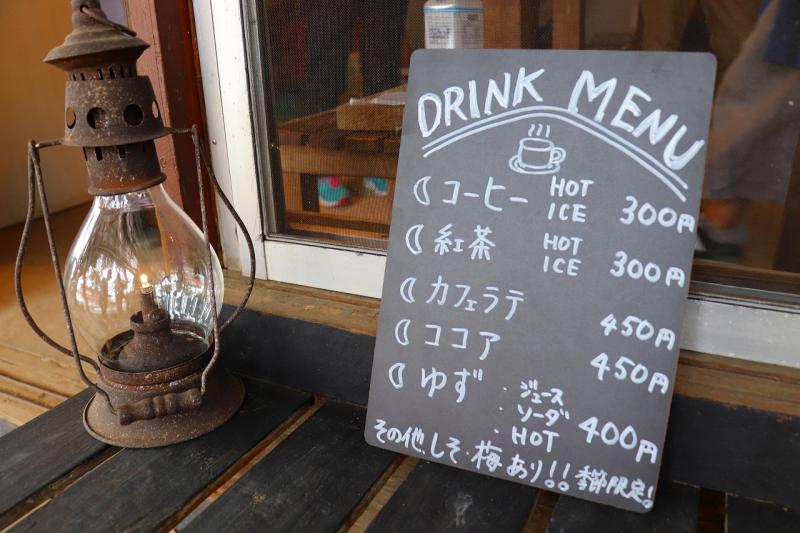 DRINK MENU
コーヒー HOT ICE 300円
紅茶 HOT ICE 300円
カフェラテ 450円
ココア 450円
ゆず ・ジュース ・ソーダ ・HOT 400円
その他、しそ・梅あり!! 季節限定!